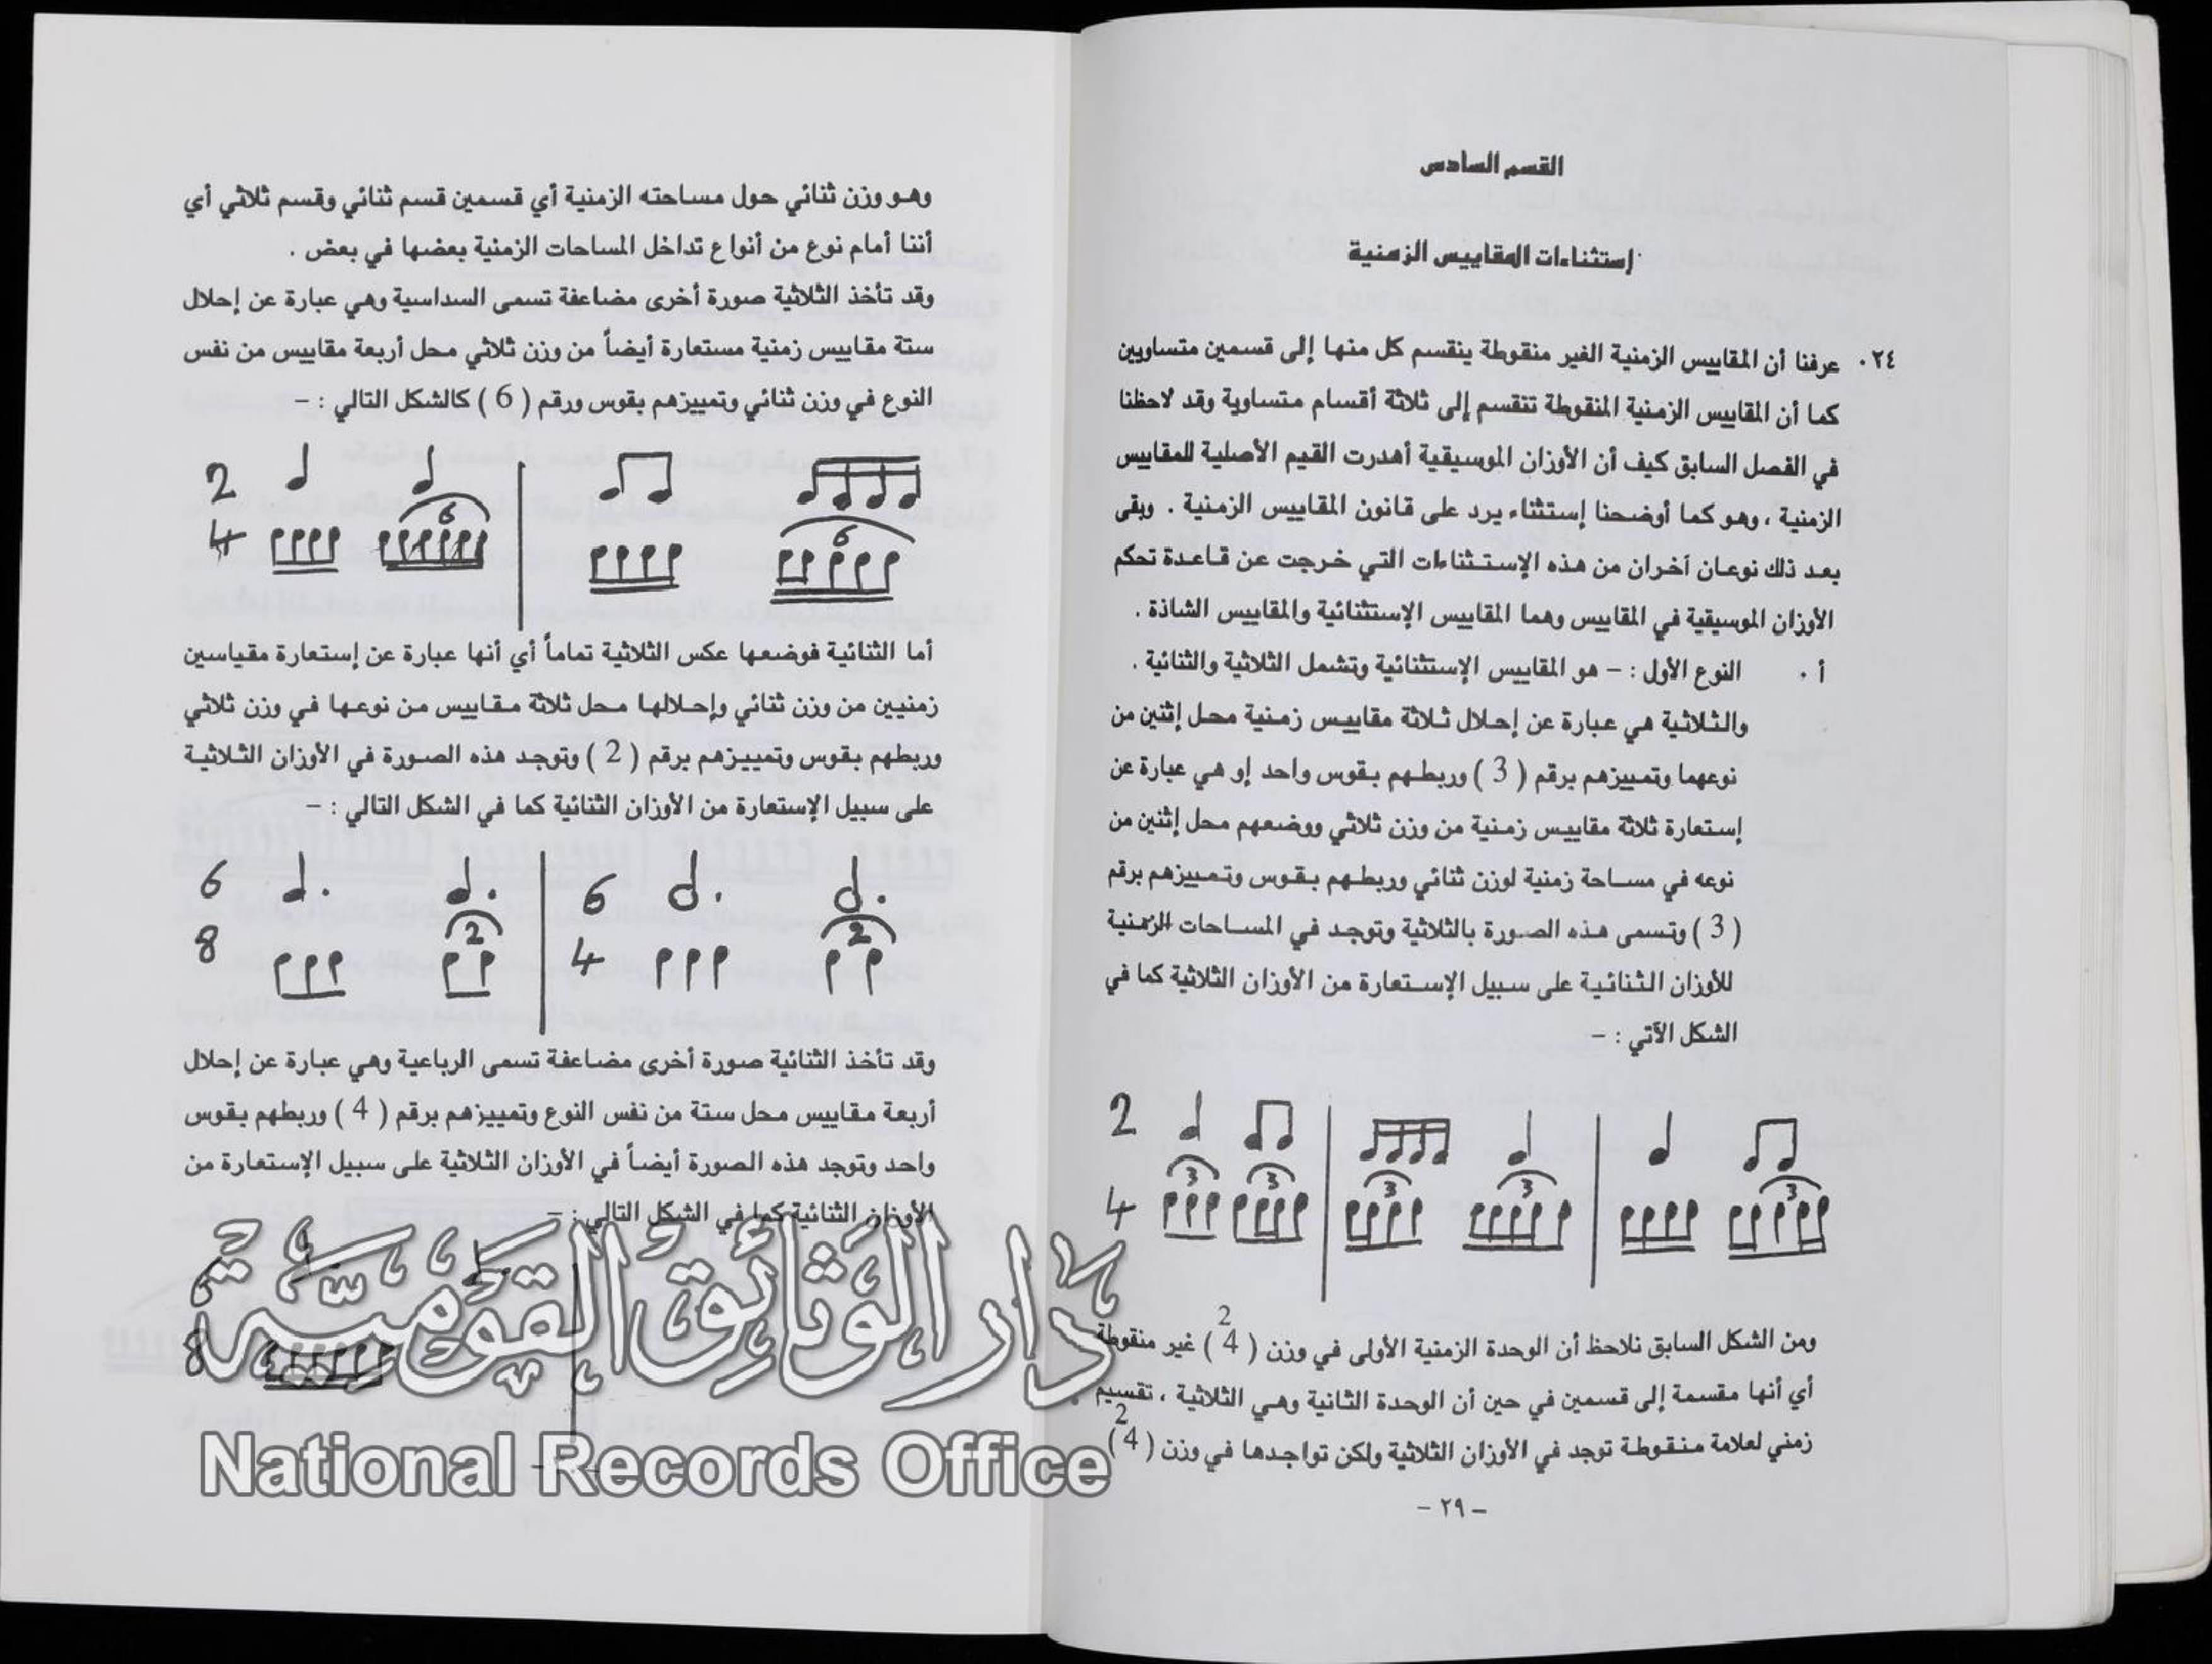 القسم السادس
إستثناءات المقاييس الزمنية
٢٤٠ عرفنا أن المقاييس الزمنية الغير منقوطة ينقسم كل منها إلى قسمين متساويين
كما أن المقاييس الزمنية المنقوطة تنقسم إلى ثلاثة أقسام متساوية وقد لاحظنا
في الفصل السابق كيف أن الأوزان الموسيقية أهدرت القيم الأصلية للمقاييس
الزمنية ، وهو كما أوضحنا إستثناء يرد على قانون المقاييس الزمنية . وبقى
بعد ذلك نوعان آخران من هذه الإستثناءات التي خرجت عن قاعدة تحكم
الأوزان الموسيقية في المقاييس وهما المقاييس الإستثنائية والمقاييس الشاذة .
أ ٠ النوع الأول : – هو المقاييس الإستثنائية وتشمل الثلاثية والثنائية .
والثلاثية هي عبارة عن إحلال ثلاثة مقاييس زمنية محل إثنين من
نوعهما وتمييزهم برقم ( 3 ) وربطهم بقوس واحد إو هي عبارة عن
إستعارة ثلاثة مقاييس زمنية من وزن ثلاثي ووضعهم محل إثنين من
نوعه في مساحة زمنية لوزن ثنائي وربطهم بقوس وتمييزهم برقم
( 3 ) وتسمى هذه الصورة بالثلاثية وتوجد في المساحات الزمنية
للأوزان الثنائية على سبيل الإستعارة من الأوزان الثلاثية كما في
الشكل الآتي : –
2
3 3 3 3 3
4
2
ومن الشكل السابق نلاحظ أن الوحدة الزمنية الأولى في وزن ( 4 ) غير منقوطة
أي أنها مقسمة إلى قسمين في حين أن الوحدة الثانية وهي الثلاثية ، تقسيم
2
زمني لعلامة منقوطة توجد في الأوزان الثلاثية ولكن تواجدها في وزن ( 4 )
– ٢٩ –
وهو وزن ثنائي حول مساحته الزمنية أي قسمين قسم ثنائي وقسم ثلاثي أي
أننا أمام نوع من أنواع تداخل المساحات الزمنية بعضها في بعض .
وقد تأخذ الثلاثية صورة أخرى مضاعفة تسمى السداسية وهي عبارة عن إحلال
ستة مقاييس زمنية مستعارة أيضاً من وزن ثلاثي محل أربعة مقاييس من نفس
النوع في وزن ثنائي وتمييزهم بقوس ورقم ( 6 ) كالشكل التالي : –
2
6 6
4
أما الثنائية فوضعها عكس الثلاثية تماماً أي أنها عبارة عن إستعارة مقياسين
زمنيين من وزن ثنائي وإحلالها محل ثلاثة مقاييس من نوعها في وزن ثلاثي
وربطهم بقوس وتمييزهم برقم ( 2 ) وتوجد هذه الصورة في الأوزان الثلاثية
على سبيل الإستعارة من الأوزان الثنائية كما في الشكل التالي : –
6 6
8 2 4 2
وقد تأخذ الثنائية صورة أخرى مضاعفة تسمى الرباعية وهي عبارة عن إحلال
أربعة مقاييس محل ستة من نفس النوع وتمييزهم برقم ( 4 ) وربطهم بقوس
واحد وتوجد هذه الصورة أيضاً في الأوزان الثلاثية على سبيل الإستعارة من
الأوزان الثنائية كما في الشكل التالي : –
6
8
دار الوثائق القومية
National Records Office